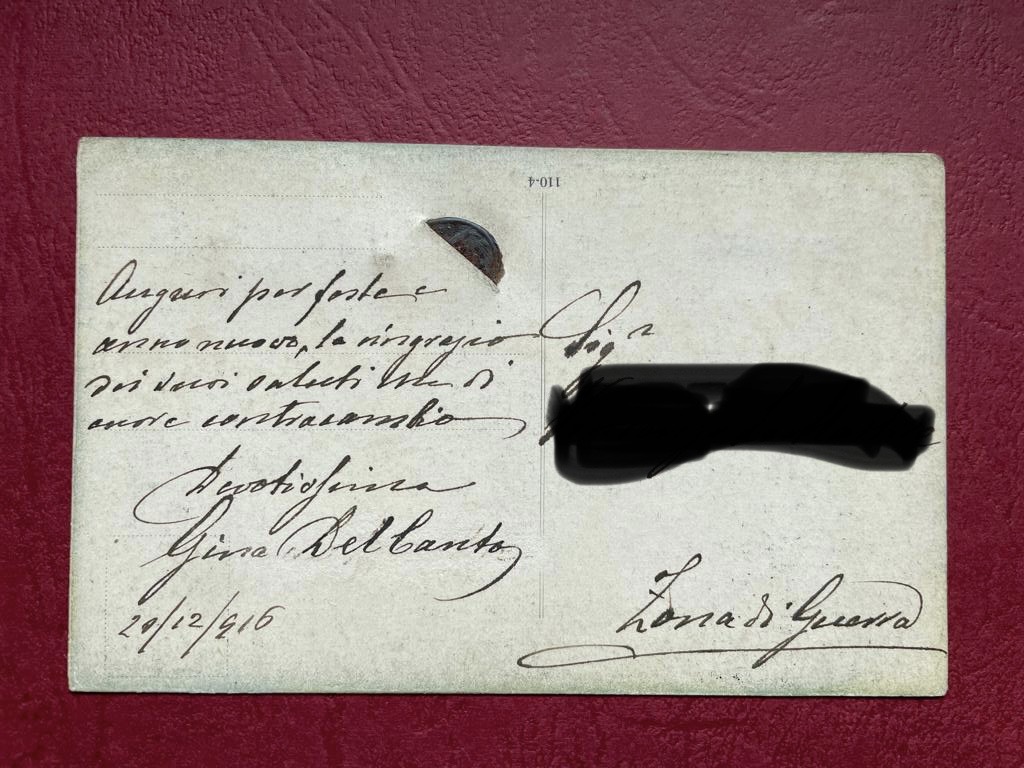 110-4
Auguri per feste e
anno nuovo, la ringrazio
dei suoi saluti me di
cuore contracambio
Devotissima
Gina Del Canto
29/12/916
Sigr
Zona di Guerra